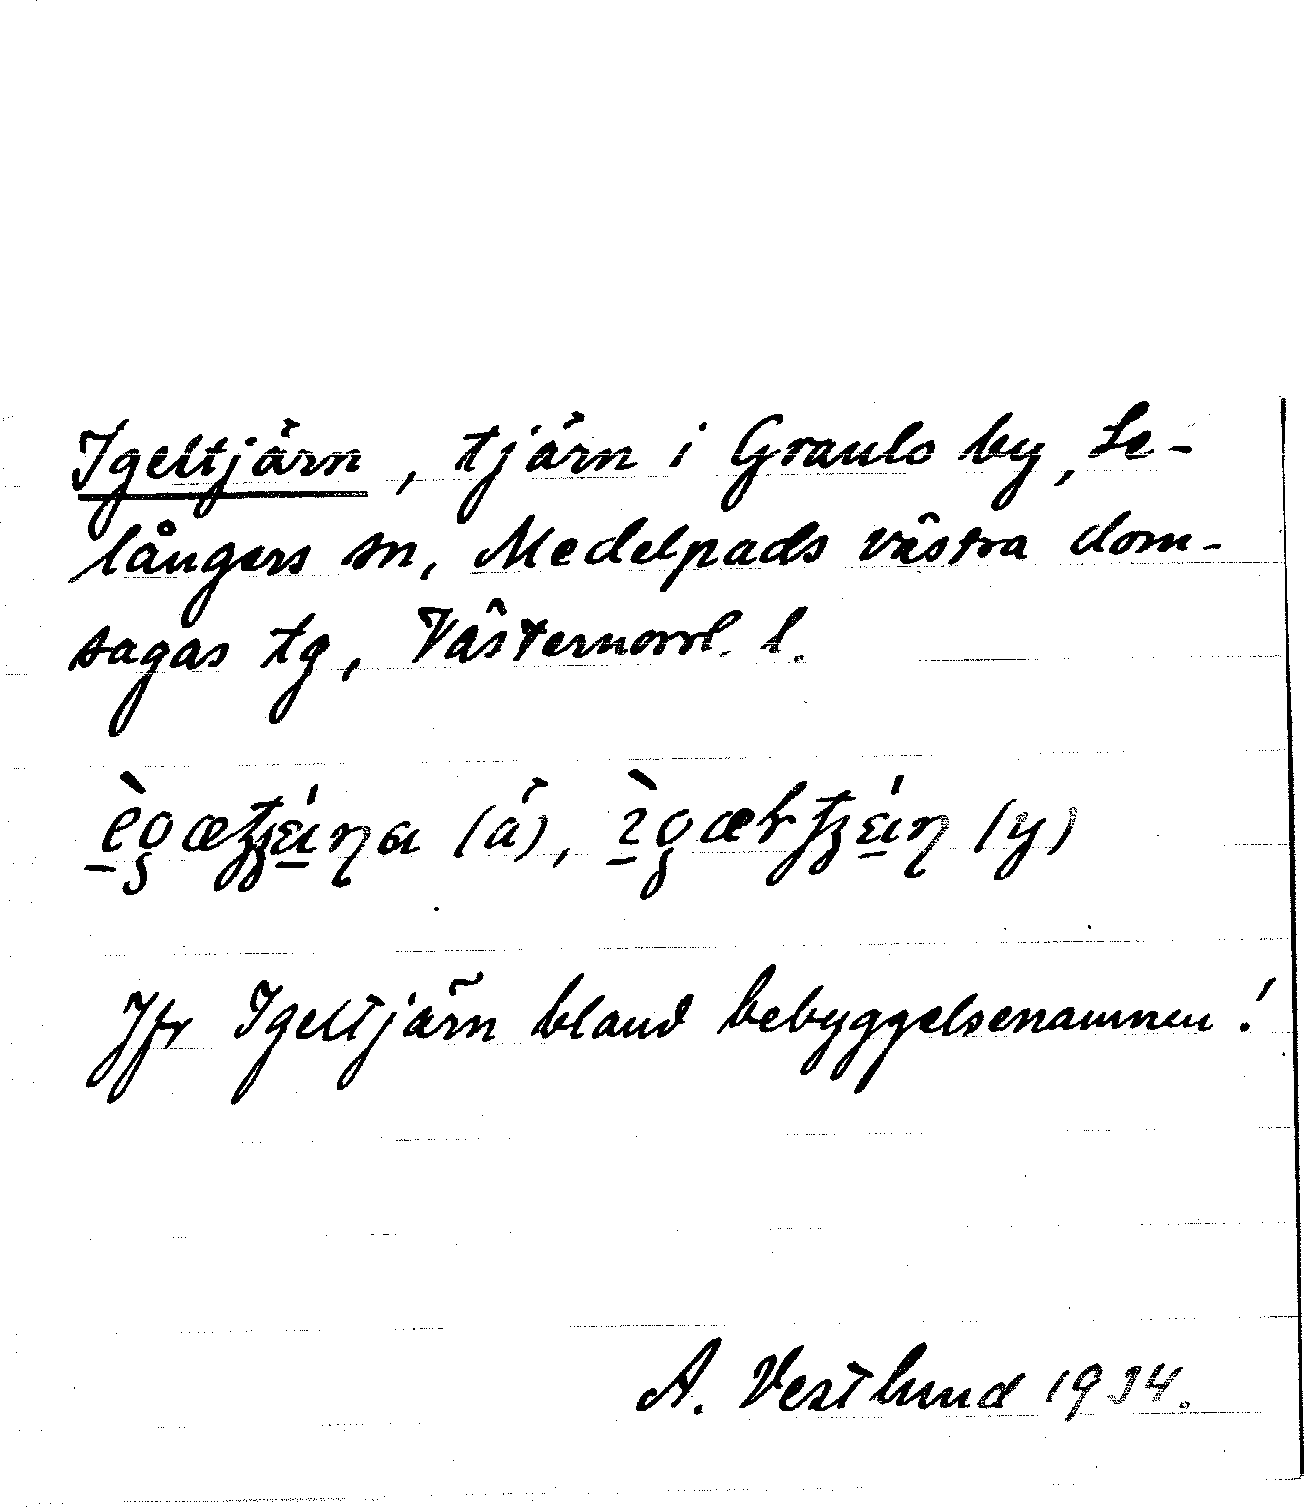 Igeltjärn, tjärn i Graulo by, Se-
långers sn, Medelpads västra dom-
sagas tg, Västernorrl. l.
(ä), (y)
Jfr Igeltjärn bland bebyggelsenamnen!
A. Vestlund 1934.